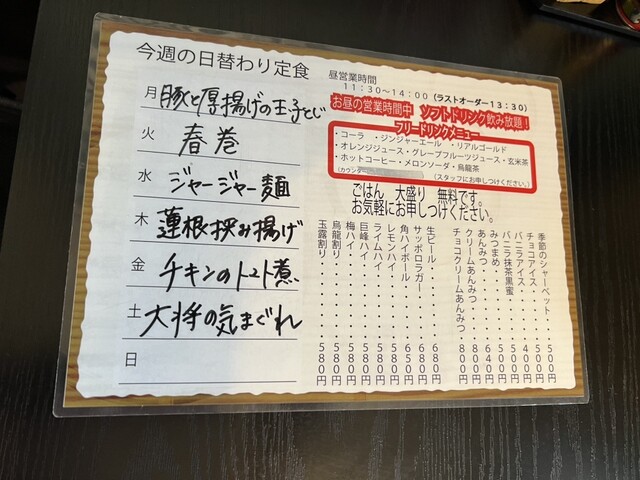 今週の日替わり定食
月 豚と厚揚げの玉子とじ
火 春巻
水 ジャージャー麺
木 蓮根挟み揚げ
金 チキンのトマト煮
土 大将の気まぐれ
日
昼営業時間
11:30~14:00 (ラストオーダー13:30)
お昼の営業時間中 ソフトドリンク飲み放題!
フリードリンクメニュー
・コーラ ・ジンジャーエール ・リアルゴールド
・オレンジジュース・グレープフルーツジュース・玄米茶
・ホットコーヒー・メロンソーダ・烏龍茶
(カウンター (スタッフにお申しつけください。)
ごはん 大盛り 無料です。
お気軽にお申しつけください。
季節のシャーベット・・500円
チョコアイス・・・500円
バニラアイス・・・400円
バニラ抹茶黒蜜・・500円
みつまめ・・・500円
あんみつ・・・640円
クリームあんみつ・・800円
チョコクリームあんみつ 800円
生ビール・・・680円
サッポロラガー・・680円
角ハイボール・・・650円
レモンハイ・・・580円
ライムハイ・・・580円
巨峰ハイ・・・580円
梅ハイ・・・580円
烏龍割り・・・580円
玉露割り・・・580円